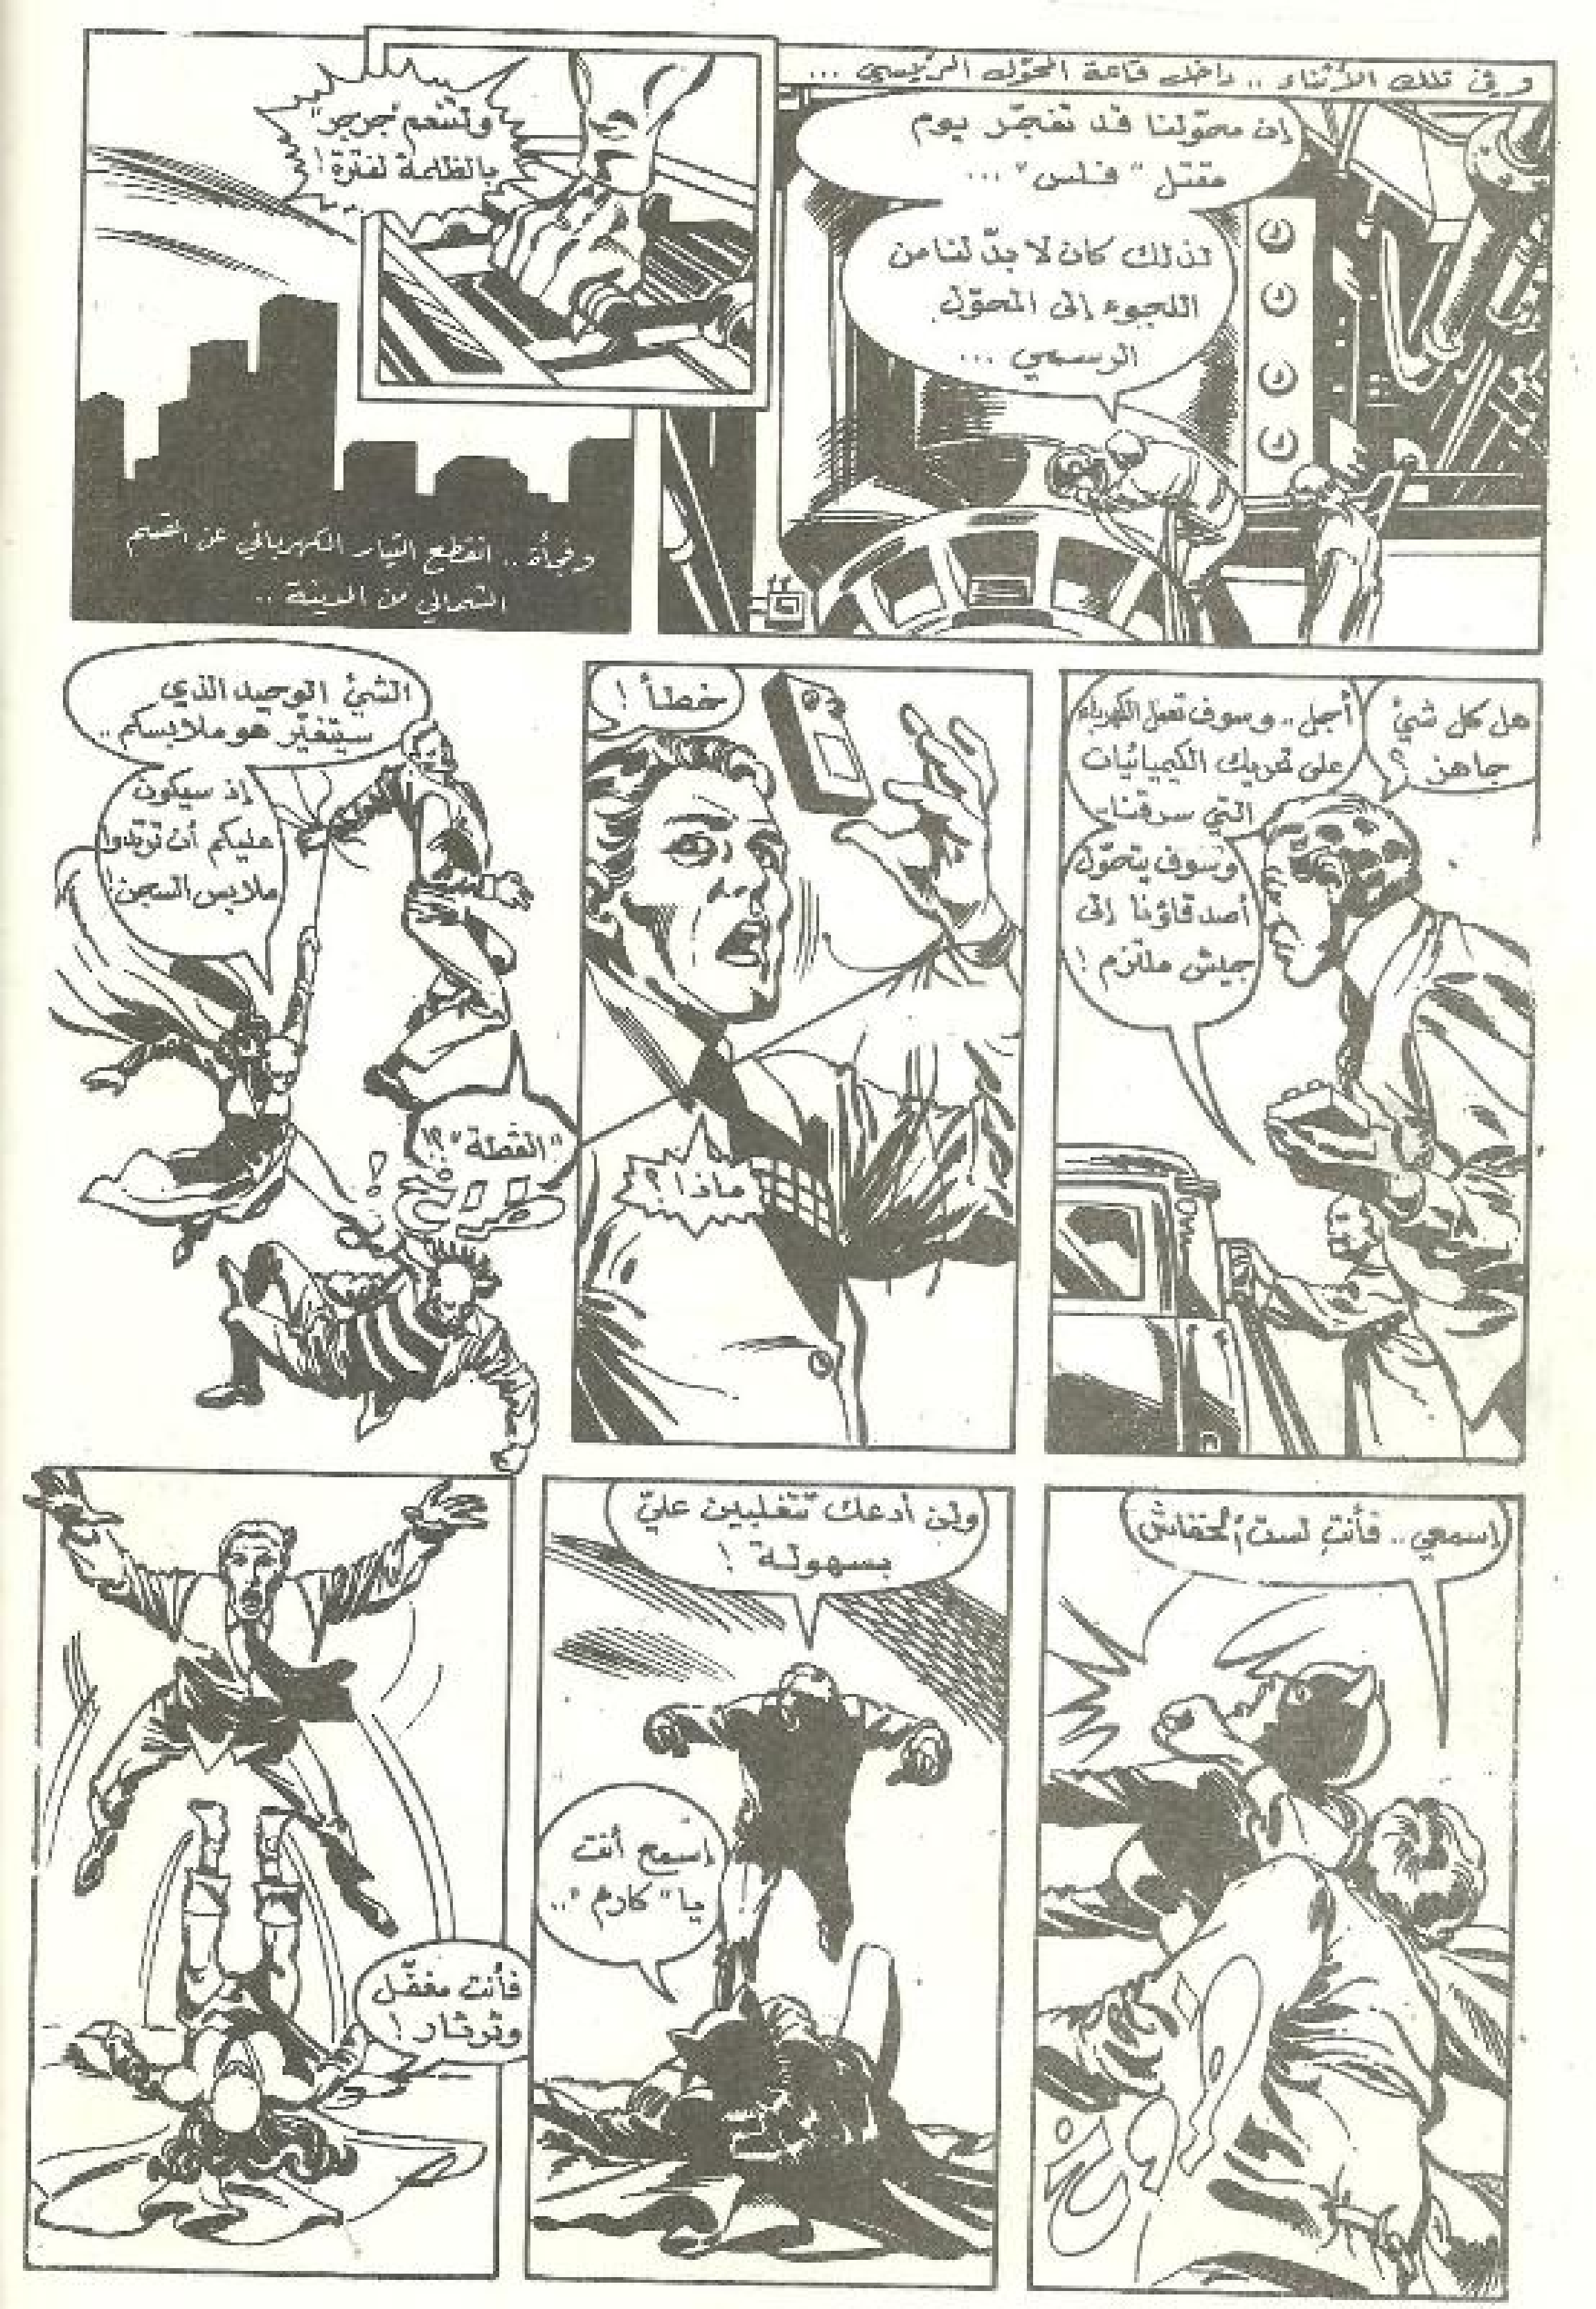 وفي تلك الأثناء .. داخل قاعة المحوّل الرئيسي ...
إن محوّلنا قد تفجّر يوم
مقتل "فلس" ...
لذلك كان لا بدّ لنا من
اللجوء إلى المحوّل
الرسمي ...
ولتنعم "جرجر"
بالظلمة لفترة !
وفجأة .. انقطع التيار الكهربائي عن القسم
الشمالي من المدينة ..
هل كل شئ
جاهز ؟
أجل .. وسوف تعمل الكهرباء
على تحريك الكيميائيات
التي سرقناها
وسوف يتحوّل
أصدقاؤنا إلى
جيش ملتزم !
خطأ !
ماذا ؟
الشئ الوحيد الذي
سيتغيّر هو ملابسكم ..
إذ سيكون
عليكم أن ترتدوا
ملابس السجن !
"القطة" ؟!
إسمعي .. فأنتِ لستِ الخفاش
ولن أدعك تتغلبين عليّ
بسهولة !
إسمع أنت
يا "كارم" ..
فأنت مغفّل
وثرثار !